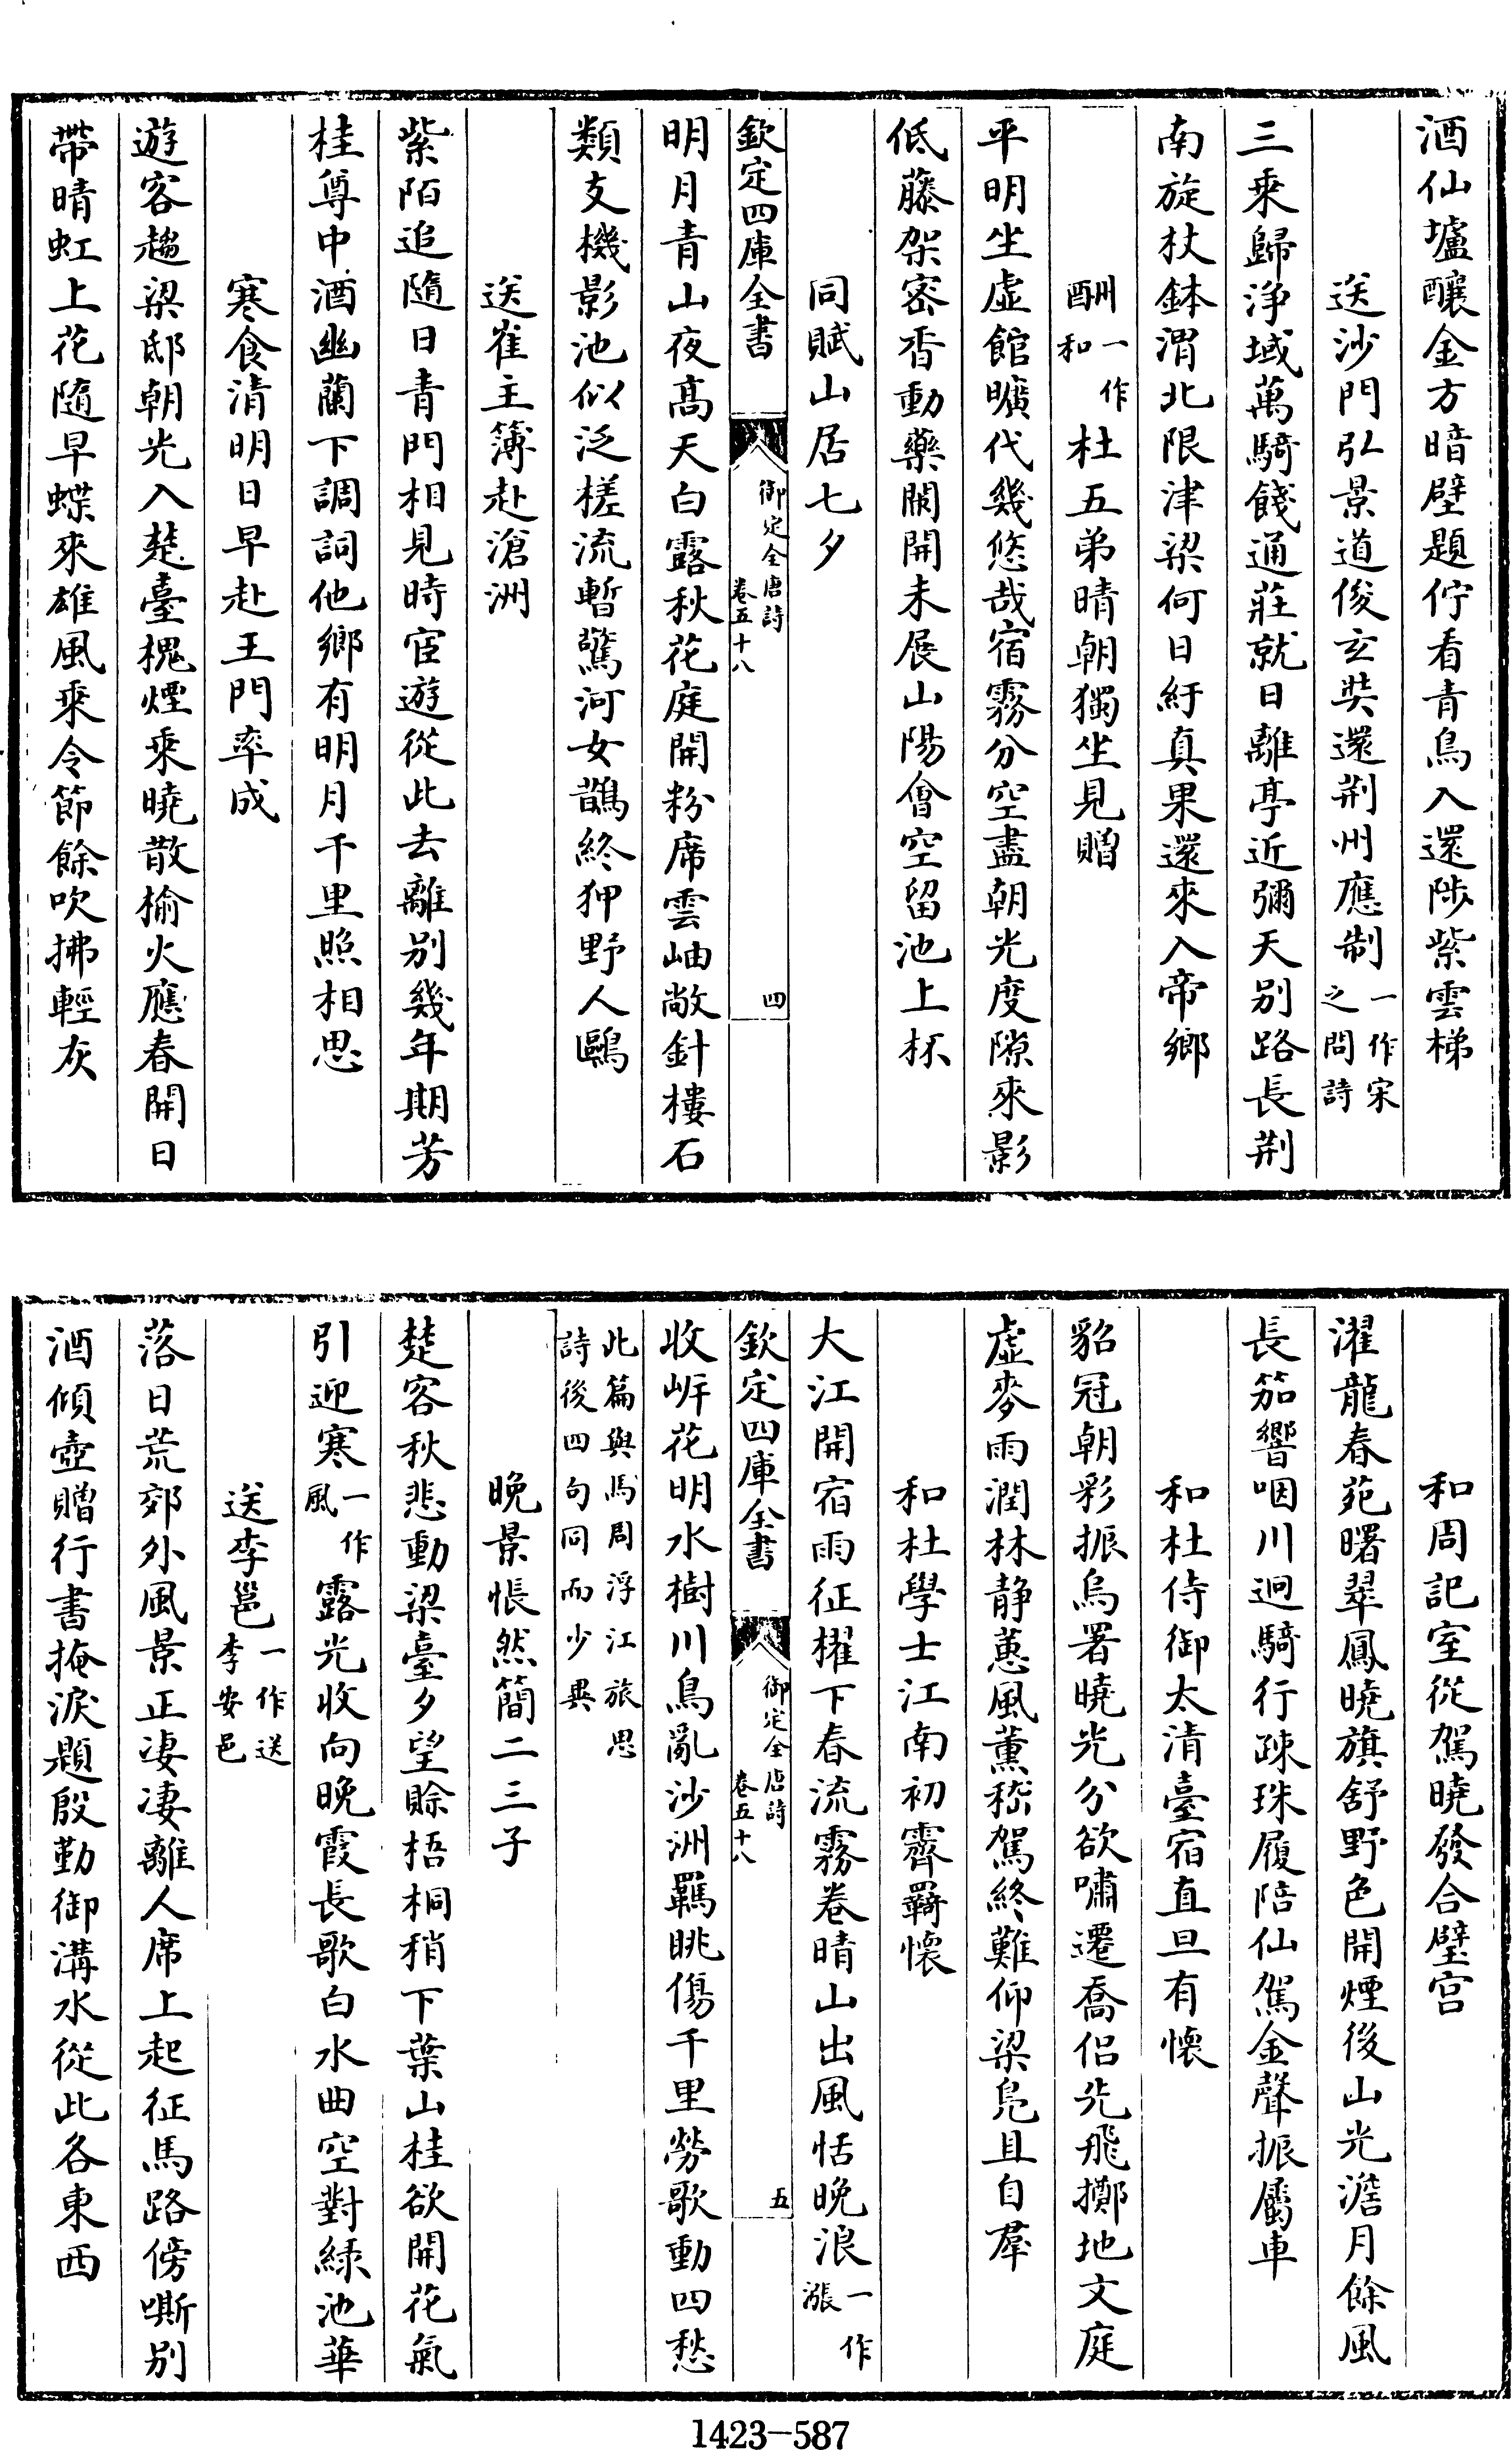 酒仙壚釀金方暗壁題佇看青鳥入還陟紫雲梯
送沙門弘景道俊玄奘還荆州應制一作宋之問詩
三乘歸浄域萬騎餞通莊就日離亭近彌天别路長荆
南旋杖鉢渭北限津梁何日紆真果還來入帝鄉
酬一作和杜五弟晴朝獨坐見贈
平明坐虚館曠代幾悠哉宿霧分空盡朝光度隙來影
低藤架密香動藥闌開未展山陽會空留池上杯
同賦山居七夕
欽定四庫全書
御定全唐詩
卷五十八
四
明月青山夜高天白露秋花庭開粉席雲岫敞針樓石
類支機影池似泛槎流暫驚河女鵲終狎野人鷗
送崔主簿赴滄洲
紫陌追隨日青門相見時宦遊從此去離别幾年期芳
桂尊中酒幽蘭下調詞他鄉有明月千里照相思
寒食清明日早赴王門率成
遊客趨梁邸朝光入楚臺槐煙乘曉散榆火應春開日
帶晴虹上花隨早蝶來雄風乘令節餘吹拂輕灰
和周記室從駕曉發合璧宫
濯龍春苑曙翠鳳曉旗舒野色開煙後山光澹月餘風
長笳響咽川迥騎行疎珠履陪仙駕金聲振屬車
和杜侍御太清臺宿直旦有懷
貂冠朝彩振烏署曉光分欲嘯遷喬侣先飛擲地文庭
虚麥雨潤林静蕙風薰嵇駕終難仰梁鳧且自羣
和杜學士江南初霽羇懷
大江開宿雨征櫂下春流霧卷晴山出風恬晚浪一作漲
欽定四庫全書
御定全唐詩
卷五十八
五
收岍花明水樹川鳥亂沙洲羈眺傷千里勞歌動四愁
此篇與馬周浮江旅思詩後四句同而少異
晚景悵然簡二三子
楚客秋悲動梁臺夕望賖梧桐稍下葉山桂欲開花氣
引迎寒一作風露光收向晚霞長歌白水曲空對緑池華
送李邕一作送李安邑
落日荒郊外風景正凄凄離人席上起征馬路傍嘶别
酒傾壺贈行書掩淚題殷勤御溝水從此各東西
1423-587